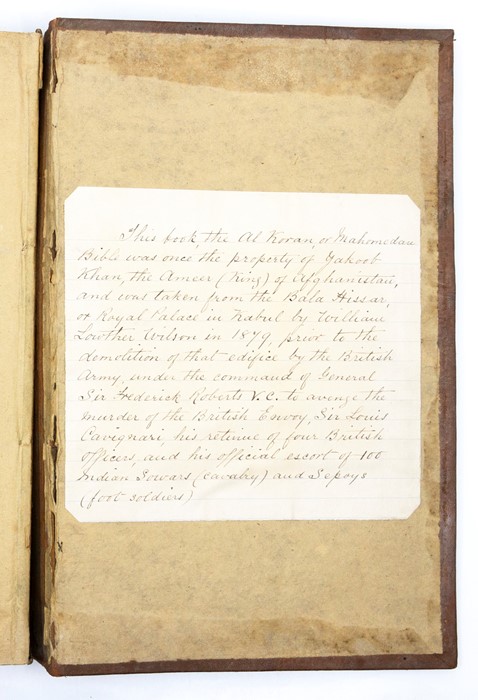 This book, the Al Koran, or Mahomedan
Bible was once the property of Yakoob
Khan, the Ameer (King) of Afghanistan,
and was taken from the Bala Hissar,
or Royal Palace in Kabul by William
Lowther Wilson in 1879, prior to the
demolition of that edifice by the British
Army, under the command of General
Sir Frederick Roberts V.C. to avenge the
murder of the British Envoy, Sir Louis
Cavignari, his retinue of four British
Officers, and his official escort of 100
Indian Sowars (cavalry) and Sepoys
(foot soldiers)